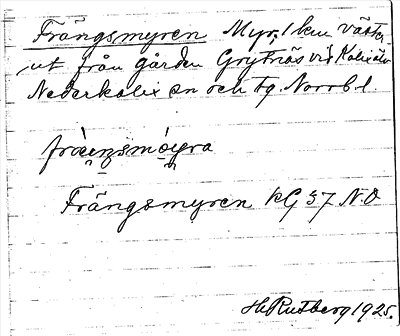 Frängsmyren Myr, 1 km väster
ut från gården Grytnäs vid Kalixälv
Nederkalix sn och tg. Norrb l.
fràeŋsmòyra
Frängsmyren KG 37 N.O
H Rutberg 1925.